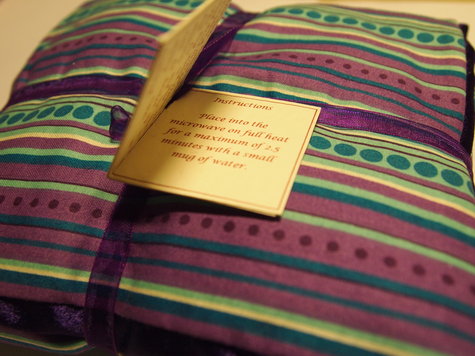 Instructions
Place into the
microwave on full heat
for a maximum of 2.5
minutes with a small
mug of water.